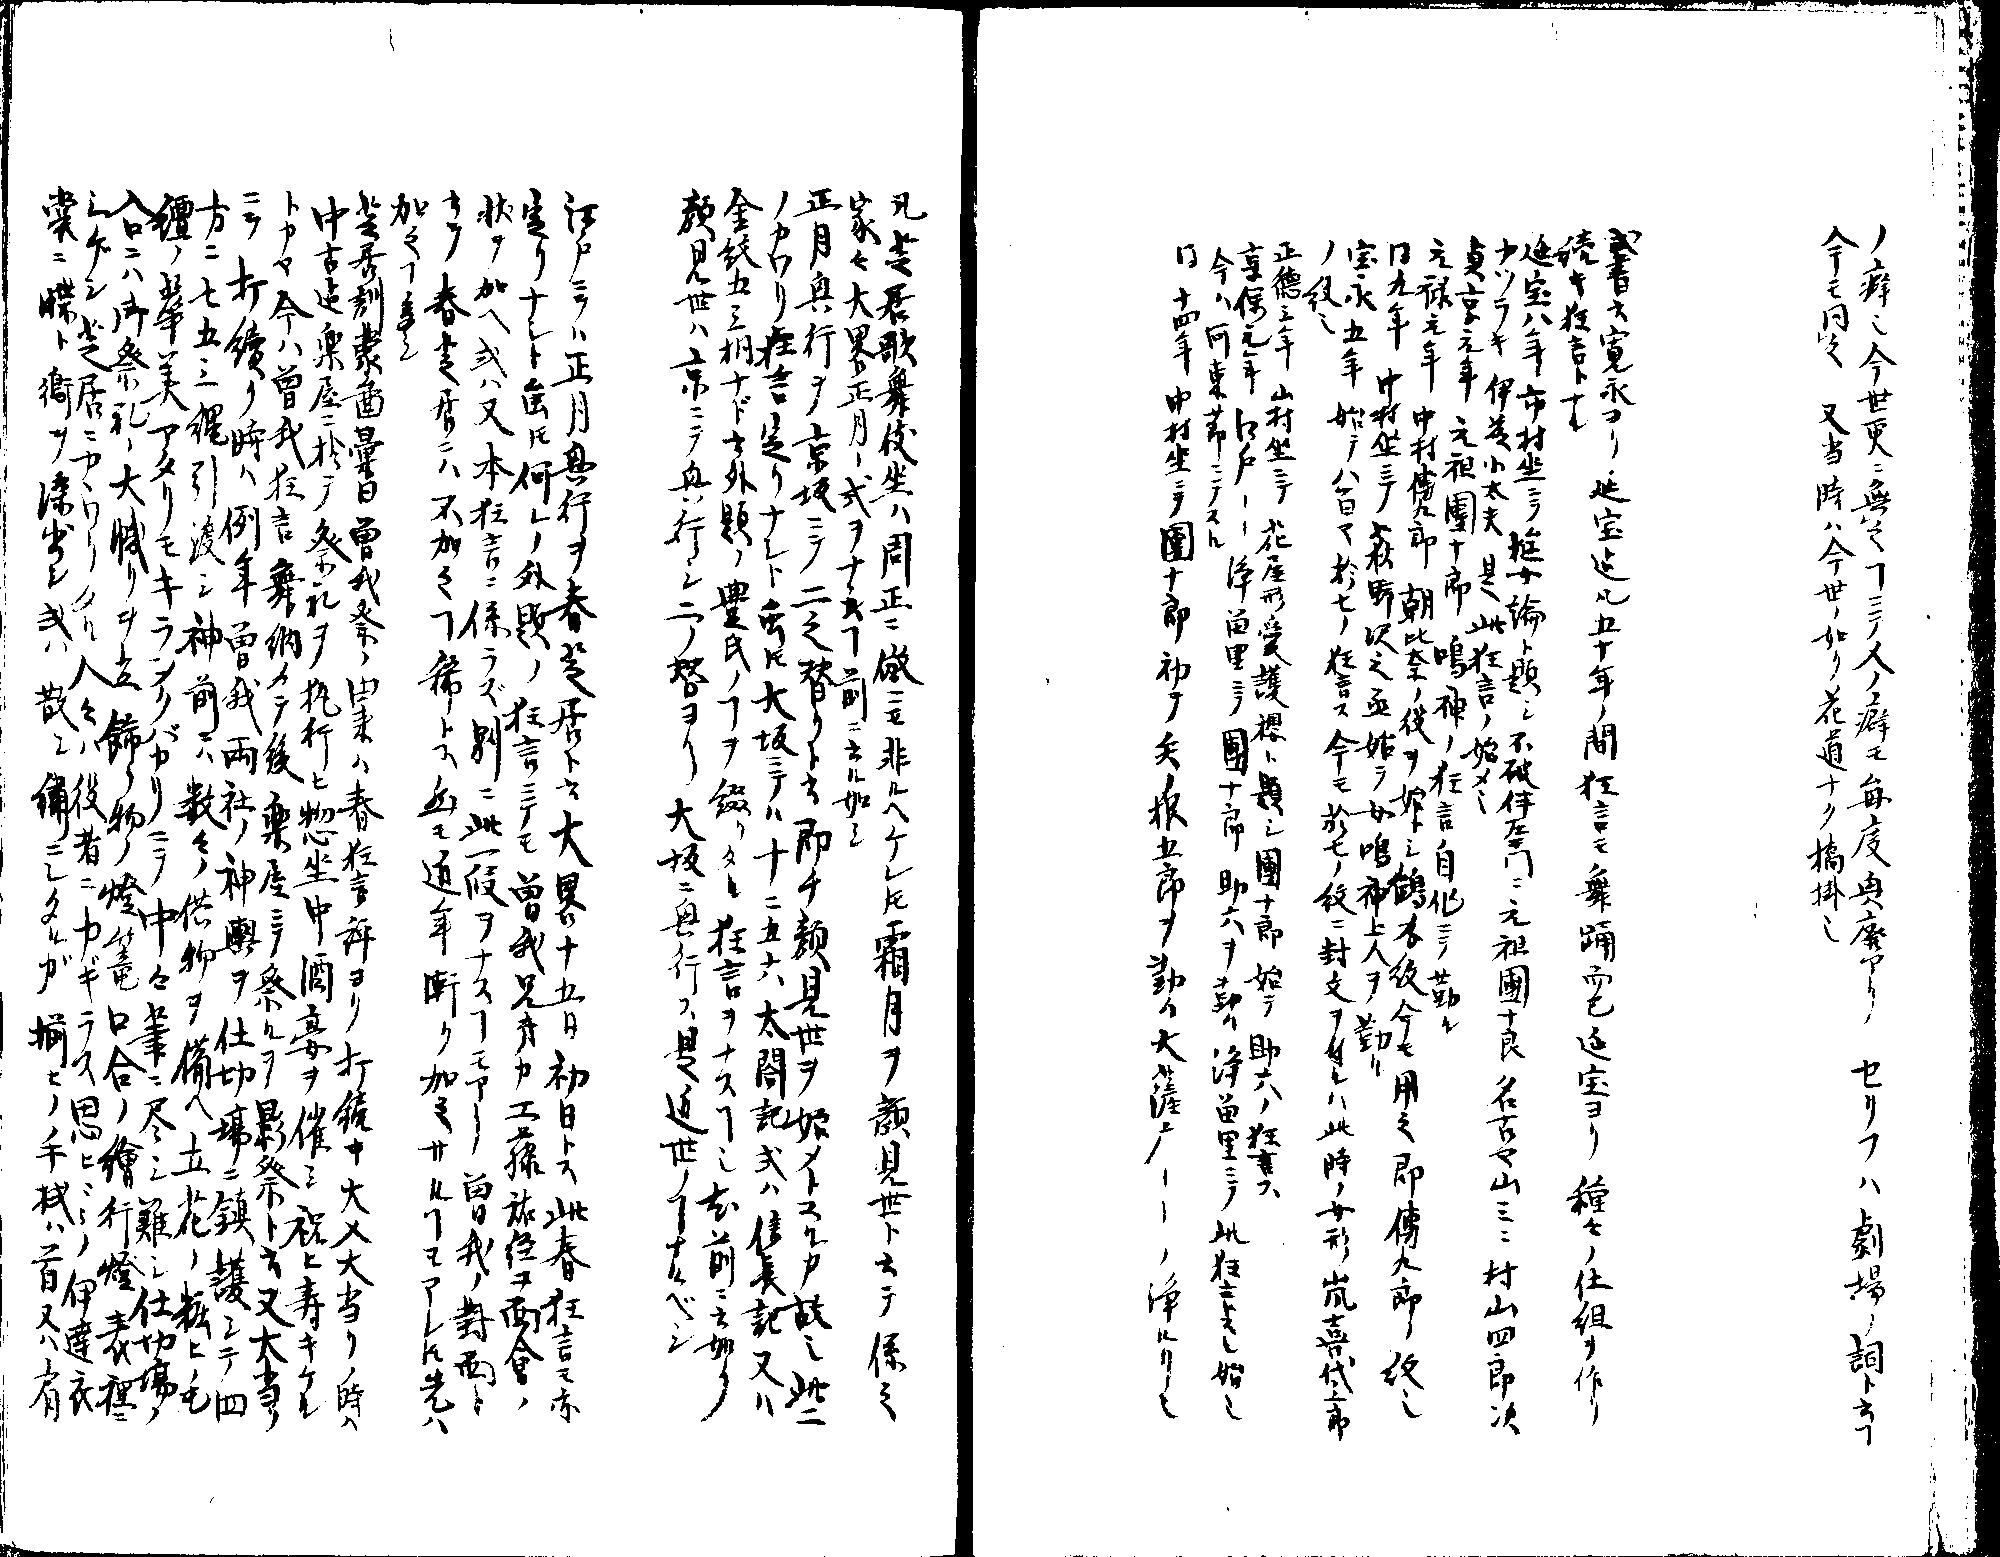 ノ癖也今世更ニ無之ヿニテ人ノ癖モ毎度興廃アリ セリフハ劇場ノ詞ト云ヿ
今モ同之 又当時ハ今世ノ如ク花道ナク橋掛也
或書云寛永ヨリ延宝迄凡五十年ノ間狂言モ舞踊而已延宝ヨリ種々ノ仕組ヲ作リ
続キ狂言トナル
延宝八年市村坐ニテ遊女論ト題シ不破伴左門ニ元祖團十良名古ヤ山三ニ村山四郎次
カツラキ伊藤小太夫是此狂言ノ始メ也
貞享元年元祖團十郎鳴神ノ狂言自作ニテ勤ル
元禄元年中村傳九郎朝比奈ノ役ヲ始トシ鶴ノ紋今モ用之即傳九郎ノ紋也
同九年中村坐ニテ萩野沢之丞始テ女鳴神上人ヲ勤ル
宝永五年始テ八百ヤ於七ノ狂言ス今モ於七ノ紋ニ封文ヲ用ルハ此時ノ女形嵐喜代三郎
ノ紋也
正徳三年山村坐ニテ花屋形愛護櫻ト題シ團十郎始テ助六ノ狂言ス
享保元年江戸――浄留理ニテ團十郎助六ヲ勤ル浄留理ニテ此狂言是始也
今ハ河東節ニテスル
同十四年中村坐ニテ團十郎初テ矢ノ根五郎ヲ勤ル大薩ナ――ノ浄ルリ也
凡芝居歌舞伎坐ハ周正ニ倣ニモ非ルヘケレトモ霜月ヲ顔見世ト云テ係之
家々モ大畧正月ノ式ヲナスヿ前ニ云ル如シ
正月興行ヲ京坂ニテ二之替リト云即チ顔見世ヲ始メトスル故也此二
ノカワリ狂言定リナシト雖トモ大坂ニテハ十ニ五六太閤記或ハ信長記又ハ
金紙五三桐ナド云外題ノ豊氏ノヿヲ綴リタル狂言ヲナスヿ也前ニ云如ク
顔見世ハ京ニテ興行シ二ノ替ヨリ大坂ニ興行ス是近世ノヿナルベシ
江戸ニテハ正月興行ヲ春芝居ト云大畧十五日初日トス此春狂言モ亦
定リナシト雖トモ何レノ外題ノ狂言ニテモ曽我兄弟カ工藤祐経ヲ面會ノ
状ヲ加ヘ或ハ又本狂言ニ係ラズ別ニ此一段ヲナスヿモアリ曽我ノ對面ト
云テ春芝居ニハ不加之ヿ稀トス然モ近年漸ク加之サルヿモアレトモ先ハ
加之ヿ多シ
芝居訓蒙圖彙曰曽我祭ノ由来ハ春狂言評ヨリ打続キ大入大当リノ時ハ
中古迄楽屋ニ於テ祭礼ヲ執行ヒ惣坐中酒宴ヲ催シ祝ヒ寿キケル
トカヤ今ハ曽我狂言舞納メテ後楽屋ニテ祭ルヲ影祭ト云又大当リ
ニテ打續ク時ハ例年曽我両社ノ神輿ヲ仕切場ニ鎮護シテ四
方ニ七五三縄引渡シ神前ニハ数々ノ供物ヲ備ヘ立花ノ粧ヒ毛
氈ノ華美アタリモキラメクバカリニテ中々筆ニ尽シ難シ仕切場ノ
入口ニハ御祭礼ノ大幟リヲ立飾リ物ノ燈篭口合ノ繪行燈表裡ニ
シゲシ芝居ニカヽワリタル人々ハ役者ニカギラス思ヒ〳〵ノ伊達衣
裳ニ蝶ト衛ヲ染出シ或ハ散シ繍ニシタルガ揃ヒノ手拭ハ首又ハ肩